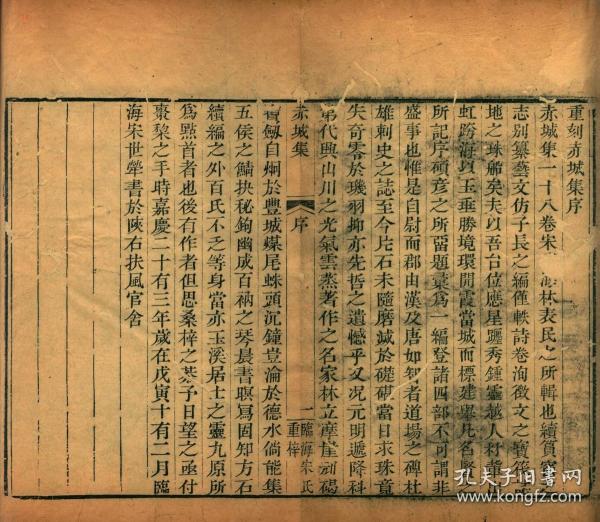 重刻赤城集序
赤城集一十八卷宋林表民之所輯也續貿
志別纂藝文仿子長之編僅軼詩卷洵徵文之寶筏
地之珠船矣夫以吾台位應星躔秀鍾靈越人
虹跨海以玉垂勝境環開霞當城而標建凡名
所記序碩彥之所留題彙為一編登諸四部不可謂非
盛事也惟是自尉而郡由漢及唐如智者道場之碑杜
雄刺史之誌至今片石未隨磨滅於礎礩當日求珠竟
失奇零於璣羽抑亦先哲之遺憾乎又况元明遞降科
第代興山川之光氣雲蒸著作之名家林立摩崖刻碣
寶劔自炯於豐城媒尾蛛頭沉鐘豈淪於德水倘能集
五侯之鯖抉秘鉤幽成百衲之琴晨書暝寫固知方石
續編之外百氏不乏等身當亦玉溪居士之靈九原所
為點首者也後有作者但思桑梓之恭予日望之亟付
棗棃之手時嘉慶二十有三年歲在戊寅十有二月臨
海宋世犖書於陝右扶風官舍
赤城集
序
一
臨海宋氏
重梓
孔夫子旧书网
www.kongfz.com